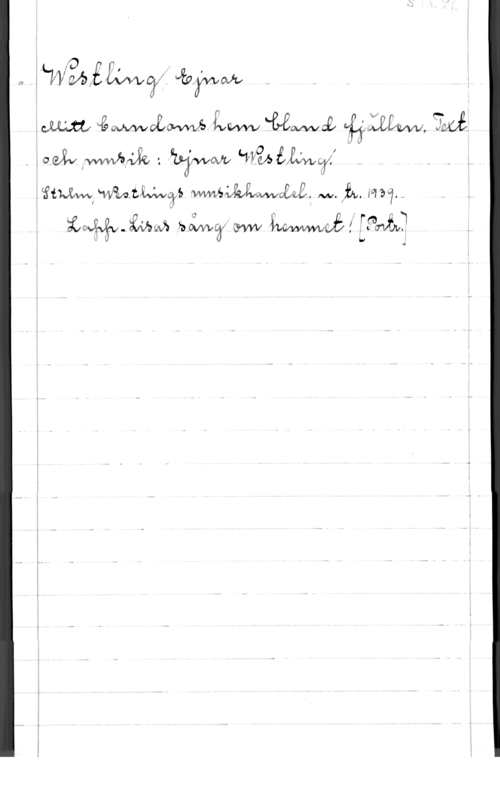 Westling, Ejnar
Mitt barndomshem bland fjällen. Text
och musik : Ejnar Westling.
Sthlm, Westlings musikhandel, u. tr. 1939.
Lapp-Lisas sång om hemmet! [Portr.]